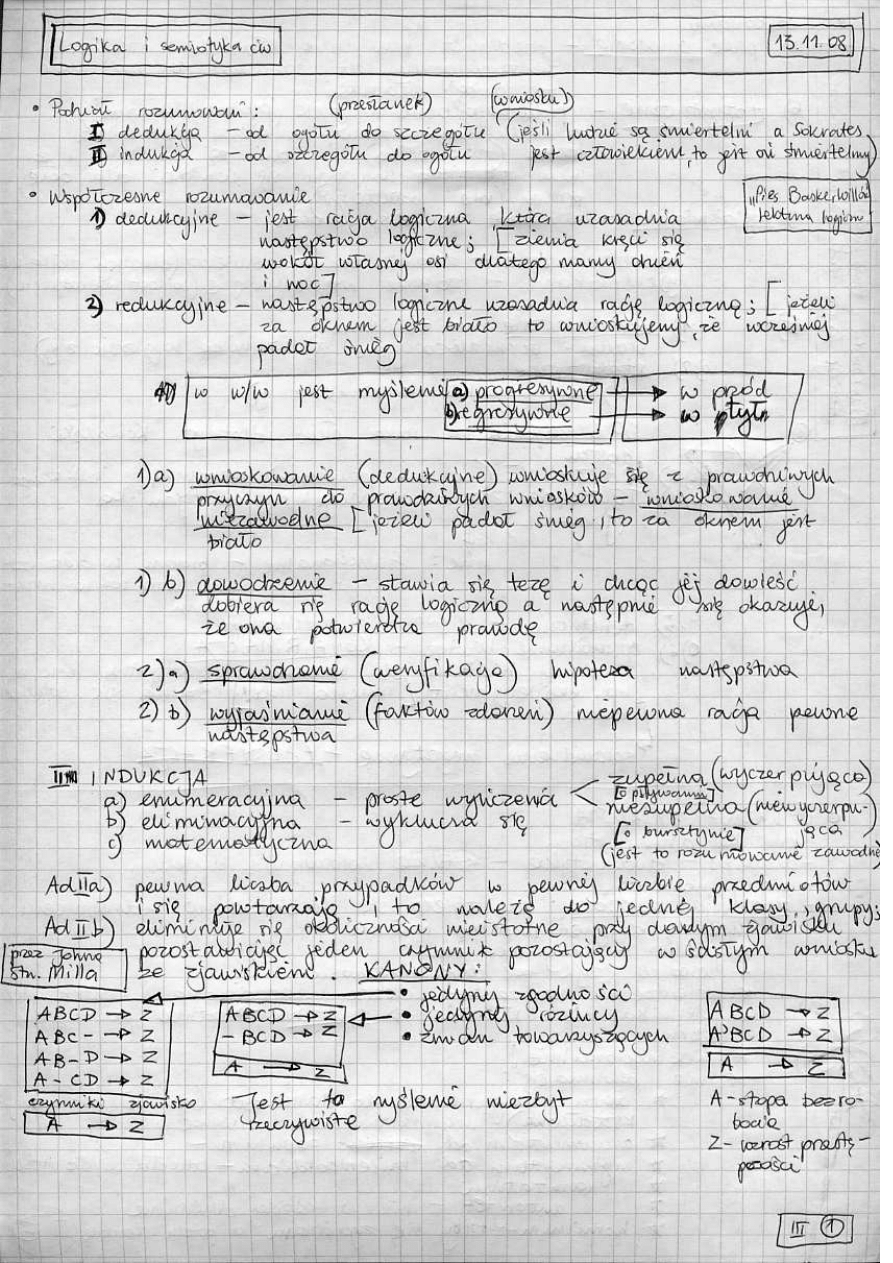 Logika i semiotyka ćw
13.11.08
• Podział rozumowań: (przesłanek) (wniosku)
I) dedukcja – od ogółu do szczegółu (jeśli ludzie są śmiertelni a Sokrates
II) indukcja – od szczegółu do ogółu jest człowiekiem, to jest on śmiertelny)
• Współczesne rozumowanie
"Pies Baskervillów
lektura logiczn
1) dedukcyjne – jest racja logiczna, która uzasadnia
następstwo logiczne; [ziemia kręci się
wokół własnej osi dlatego mamy dzień
i noc]
2) redukcyjne – następstwo logiczne uzasadnia rację logiczną; [jeżeli
za oknem jest biało to wnioskujemy, że wcześniej
padał śnieg
w w/w jest myślenie a) progresywne → w przód
b) regresywne → w tył
1) a) wnioskowanie (dedukcyjne) wnioskuje się z prawdziwych
przyczyn do prawdziwych wniosków – wnioskowanie
niezawodne [jeżeli padał śnieg, to za oknem jest
biało
1) b) dowodzenie – stawia się tezę i chcąc jej dowieść
dobiera się rację logiczną a następnie się okazuje,
że ona potwierdza prawdę
2) a) sprawdzanie (weryfikacja) hipoteza następstwa
2) b) wyjaśnianie (faktów zdarzeń) niepewna racja pewne
następstwa
II INDUKCJA
a) enumeracyjna – proste wyliczenia < zupełna (wyczerpująca)
[o pływaniu]
b) eliminacyjna – wyklucza się niezupełna (niewyczerpu-
c) matematyczna [o bursztynie] jąca
(jest to rozumowanie zawodne
Ad IIa) pewna liczba przypadków w pewnej liczbie przedmiotów
i się powtarzają, to należą do jednej klasy, grupy;
Ad II b) eliminuje się okoliczności nieistotne przy danym zjawisku
przez Johna
Stn. Milla
pozostawiając jeden czynnik pozostający w ścisłym wniosku
ze zjawiskiem. KANONY:
• jedynej zgodności
• jedynej różnicy
• zmian towarzyszących
ABCD → Z
ABC- → Z
AB-D → Z
A-CD → Z
czynniki zjawisko
A → Z
ABCD → Z
-BCD → Z
A → Z
Jest to myślenie niezbyt
rzeczywiste
ABCD → Z
A'BCD → Z
A → Z
A - stopa bezro-
bocia
Z - wzrost przestę-
pczości
III 1